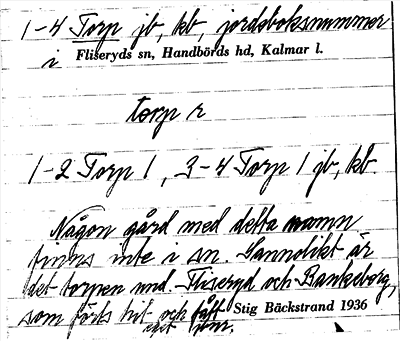 1-4 Torp jb, kb, jordeboksnummer
i Fliseryds sn, Handbörds hd, Kalmar l.
torp r
1-2 Torp 1, 3-4 Torp 1 jb, kb.
Någon gård med detta namn
finns inte i sn. Sannolikt är
det torpen und. Fliseryd och Bankeberg,
som förts hit och fått
eget num. Stig Bäckstrand 1936